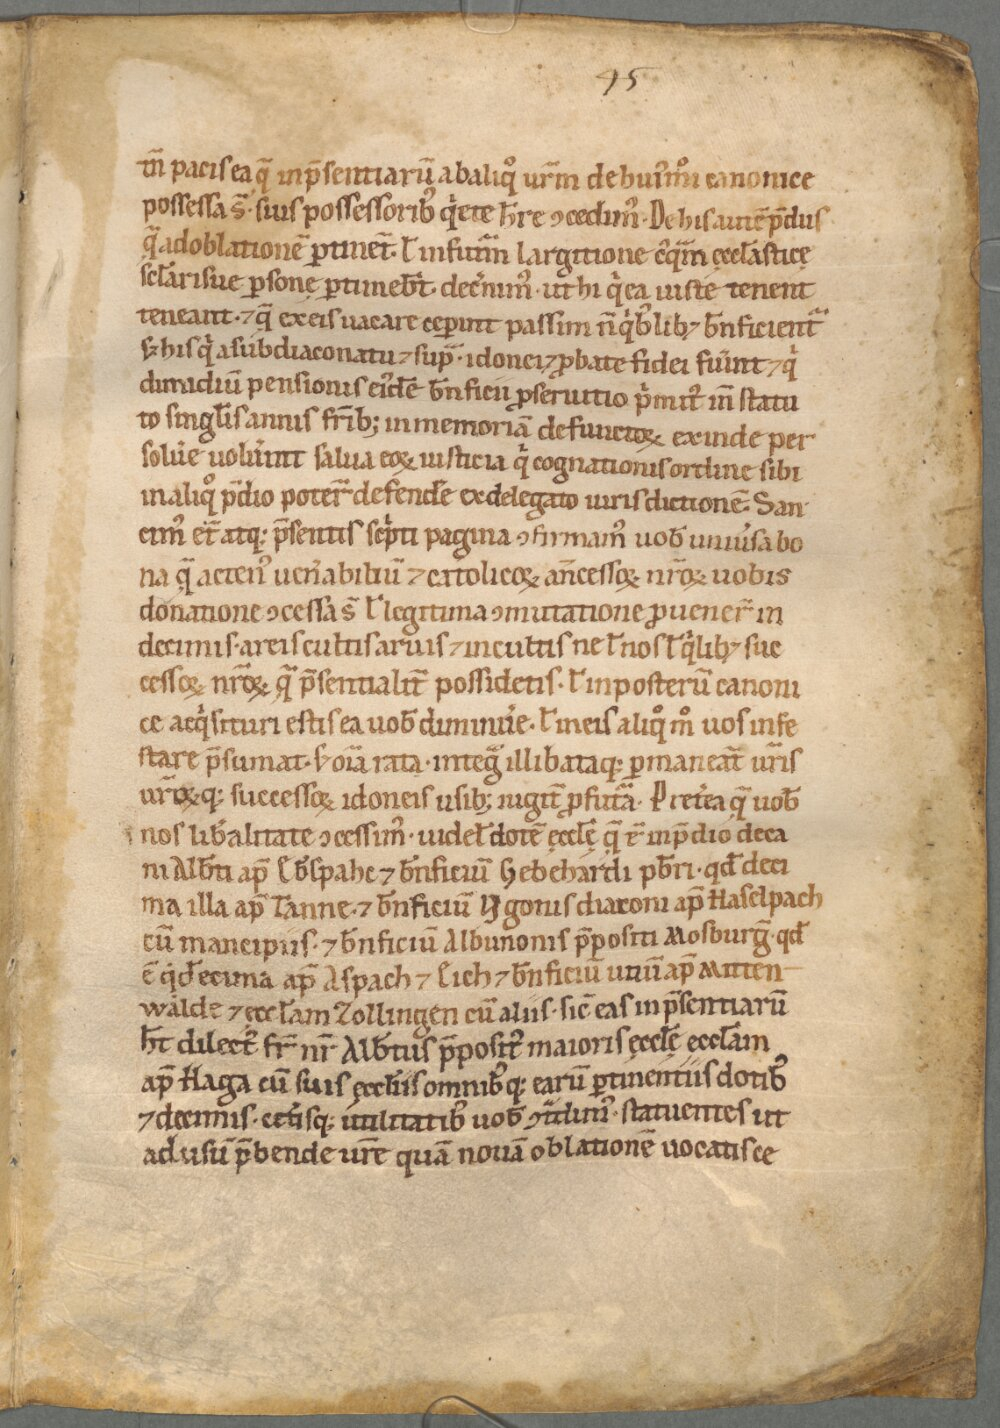 45
tm̄ pacis ea q̄ in p̄sentiarū ab aliqͦ ur̄m de bui'mͦi canonice
possessa s̄. suis possessorib᷒ qͥete h̄re ꝯcedim᷒. De his autē p̄dus
q̄ ad oblationē ꝑtinet̄. ł in futur̄ largitione ecclasticę
sclarisue ꝑsonę ꝑtineb̄t. dec̄nim᷒. ut hi qͥ ea iuste tenent
teneant. ⁊ q̄ ex eis uacare ceꝑint passim b̄nficientᷓ
his qͥ a subdiaconatu ⁊ supᷓ. idonei ⁊ ꝓbate fidei fūint ⁊ qͥ
dimidiū pensionis eiᷤdē b̄nficii ꝓ seruitio p̄mit᷒ in statu
to singlis annis fr̄ib; in memoriā defunctoꝝ exinde per
solūe uolūint salua eoꝝ iusticia qͥ cognationis ordine sibi
in aliqͦ p̄dio poter̄ defendē ex delegato iuris dictionē. San
cim᷒ et̄ atq; p̄sentis scͥpti pagina ꝯfirmam᷒ uob̄ uniūsa bo
na q̄ acten᷒ uen̄abiliū ⁊ catolicoꝝ an̄cessoꝝ nr̄oꝝ uobis
donatione ꝯcessa s̄ ł legitima ꝯmutatione ꝓuener̄ in
decimis. areis cultis aruis ⁊ incultis ne ł nos ł qͥlibꝫ suc
cessoꝝ nr̄oꝝ q̄ p̄sentialit̄ possidetis. ł in posterū canoni
ce acqͥsituri estis ea uob̄ diminūe. ł in eis aliqͦ mͦ uos infe
stare p̄sumat. sꝫ oīa rata. integᷓ illibataq; ꝑmaneāt ur̄is
ur̄oꝝq; successoꝝ idoneis usib; iugit̄ ꝓfutᷓa. Pretēa q̄ uob̄
nos lib̄alitate ꝯcessim᷒. uidel̄ dotē ęcclę̄ q̄ ē in p̄dio deca
ni Alb̄ti ap̄ Eb̄spahc ⁊ b̄nficiū Gebehardi pb̄ri. qđ deci
ma illa ap̄ Tanne. ⁊ b̄nficiū Vgonis diaconi ap̄ Haselpach
cū mancipiis. ⁊ b̄nficiū Albunonis p̄positi Mosburḡ. qđ
ē qͥ decima ap̄ Aspach ⁊ Eich ⁊ b̄nficiū unū ap̄ Mitten
walde ⁊ ęccłam Zollingen cū aliis. sic̄ eas in p̄sentiarū
h̄t dilect᷒ fr̄ nr̄ Alb̄tus p̄posit᷒ maioris ęcclę̄ ęccłam
ap̄ Haga cū suis ęccłiis omnib᷒q; earū ꝑtinentiis dotib᷒
⁊ decimis. cet̄isq; utilitatib᷒ uob̄ ꝯtᷓdim᷒. statuentes ut
ad usū p̄bende ur̄e quā nouā oblationē uocatis ce